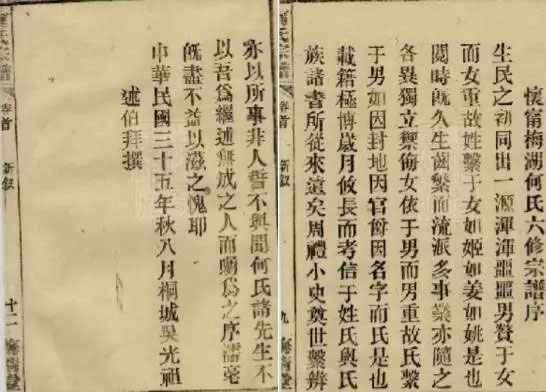 懷甯梅湖何氏六修宗譜序
生民之初同出一源渾渾噩噩男贅于女
而女重故姓繫于女如姬如姜如姚是也
閱時旣久生齒繁而流派多事業亦隨之
各異獨立禦侮女依于男而男重故氏繫
于男如因封地因官爵因名字而氏是也
載籍極博歲月攸長而考信于姓氏與氏
族諸書所從來遠矣周禮小史奠世繫辨
氏宗譜
卷首
新叙
九
堂
亦以所事非人誓不與聞何氏諸先生不
以吾爲繼述無成之人而囑爲之序濡毫
旣盡不益以滋之愧耶
中華民國三十五年秋八月桐城吳光祖
述伯拜撰
氏宗譜
卷首
新叙
十二
堂